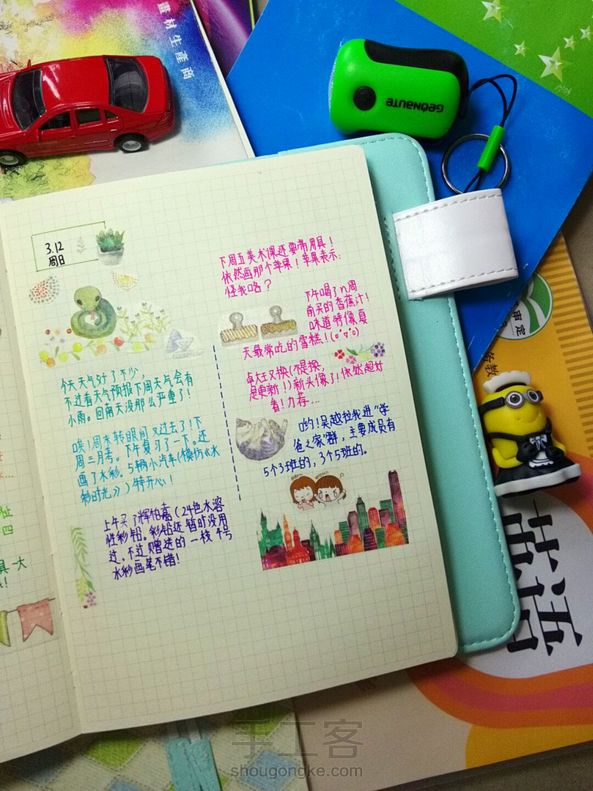 畫材生産商
GEONAUTE
3.12
周日
今天天气好了不少，
不过看天气预报下周天气会有
小雨。回南天没那么严重了！
唉！周末转眼间又过去了！下
周三月考。下午复习了一下。还
画了水彩。5辆小汽车（模仿《水
彩时光》）特开心！
上午买了辉柏嘉（24色水溶
性彩铅。彩铅还暂时没用
过，不过赠送的一枝个号
水彩画笔不错！
下周五美术课还要带用具！
依然画那个苹果！苹果表示：
怪我咯？
下午喝了n周
前买的香蕉汁！
味道特像夏
天最常吃的雪糕！(o°v°o)
卓大王又换（不是换，
是更新！）新头像了！依然超好
看！力荐…
哟！吴越拉我进“学
爸之家”群，主要成员有
5个3班的，3个5班的。
手工客
shougongke.com